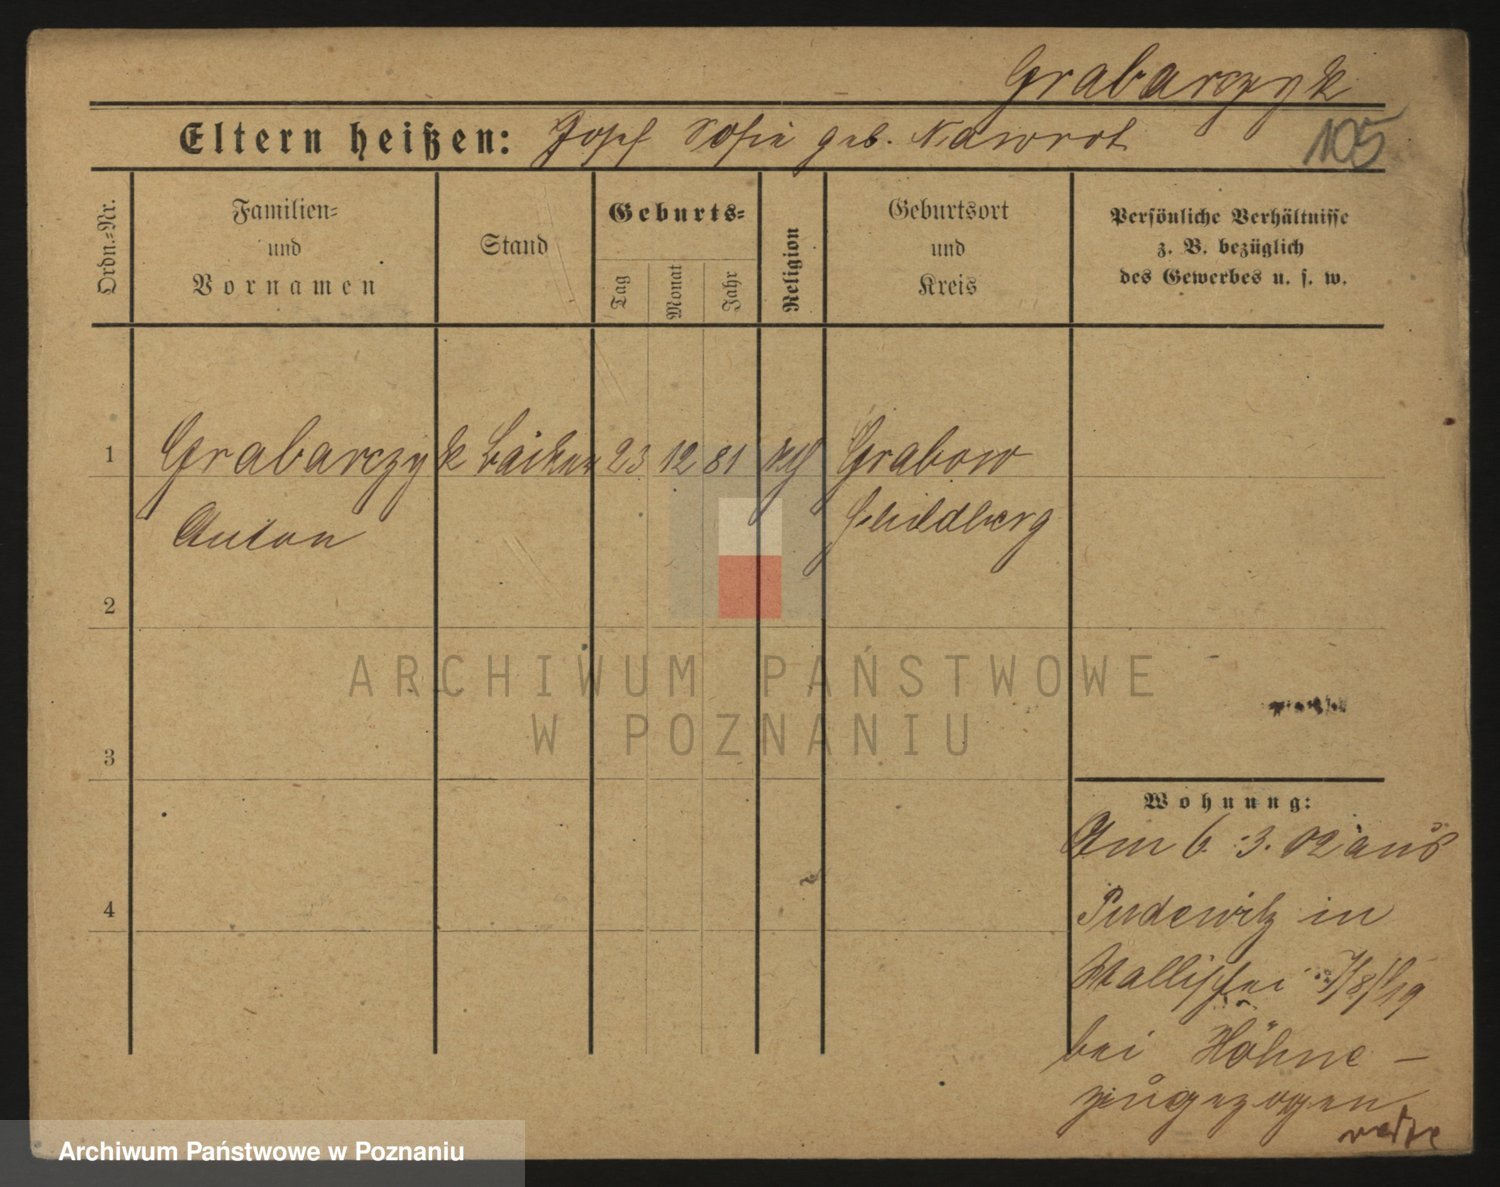 Grabarczyk
Eltern heißen: Josef Sofie geb. Nawrot
105
Ordn.-Nr.
Familien-
und
Vornamen
Stand
Geburts-
Tag
Monat
Jahr
Religion
Geburtsort
und
Kreis
Persönliche Verhältnisse
z. B. bezüglich
des Gewerbes u. s. w.
1 Grabarczyk Bäcker 23 12 81 Grabow
Anton Schildberg
2
3
4
Wohnung:
Am 6. 3. 02 aus
Pudewitz in
Wallischei
bei Höhne -
zugezogen
ARCHIWUM PAŃSTWOWE
W POZNANIU
Archiwum Państwowe w Poznaniu